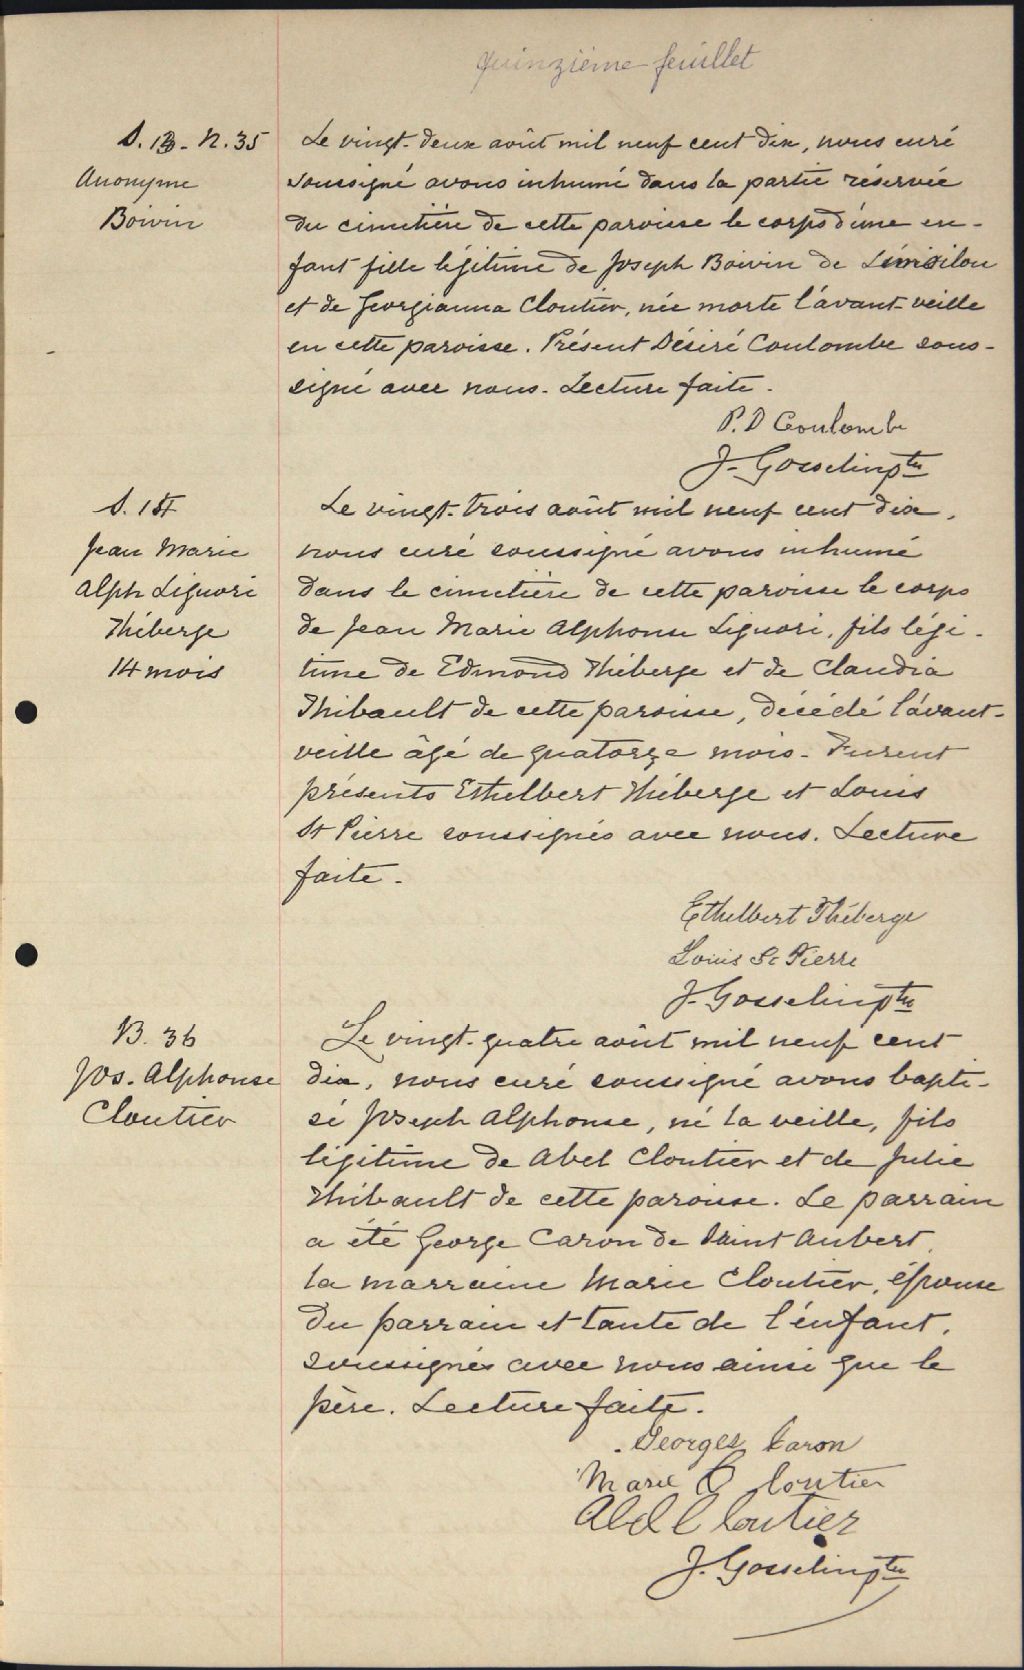 quinzième feuillet
S. 13 - N. 35
Anonyme
Boivin
Le vingt-deux août mil neuf cent dix, nous curé
soussigné avons inhumé dans la partie réservée
du cimetière de cette paroisse le corps d'une en-
fant fille légitime de Joseph Boivin de
et de Georgianna Cloutier, née morte l'avant-veille
en cette paroisse. Présent Désiré Coulombe sous-
signé avec nous. Lecture faite.
P. D Coulombe
J. Gosselin ptre
S. 14
Jean Marie
Alph Liguori
Théberge
14 mois
Le vingt-trois août mil neuf cent dix,
nous curé soussigné avons inhumé
dans le cimetière de cette paroisse le corps
de Jean Marie Alphonse Liguori, fils légi-
time de Edmond Théberge et de Claudia
Thibault de cette paroisse, décédé l'avant-
veille âgé de quatorze mois. Furent
présents Ethelbert Théberge et Louis
St Pierre soussignés avec nous. Lecture
faite.
Ethelbert Théberge
Louis St Pierre
J. Gosselin ptre
B. 36
Jos. Alphonse
Cloutier
Le vingt-quatre août mil neuf cent
dix, nous curé soussigné avons bapti-
sé Joseph Alphonse, né la veille, fils
légitime de Abel Cloutier et de Julie
Thibault de cette paroisse. Le parrain
a été George Caron de Saint Aubert,
la marraine Marie Cloutier, épouse
du parrain et tante de l'enfant,
soussignés avec nous ainsi que le
père. Lecture faite.
Georges Caron
Marie Cloutier
Abel Cloutier
J. Gosselin ptre